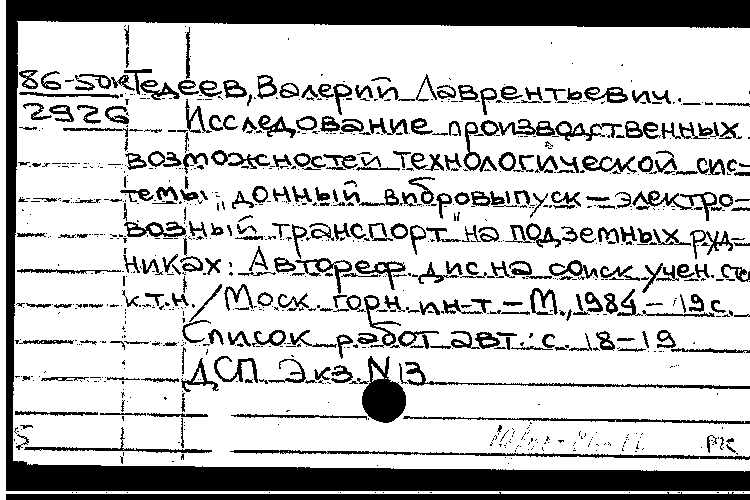 86-50к Тедеев, Валерий Лаврентьевич.
2926 Исследование производственных
возможностей технологической сис-
темы „донный вибровыпуск – электро-
возный транспорт" на подземных руд-
никах: Автореф дис. на соиск учен. сте
к.т.н. / Моск. горн. ин-т. – М., 1984. – 19 с.
Список работ авт.: с. 18-19
ДСП. Экз. N 13
5 РК